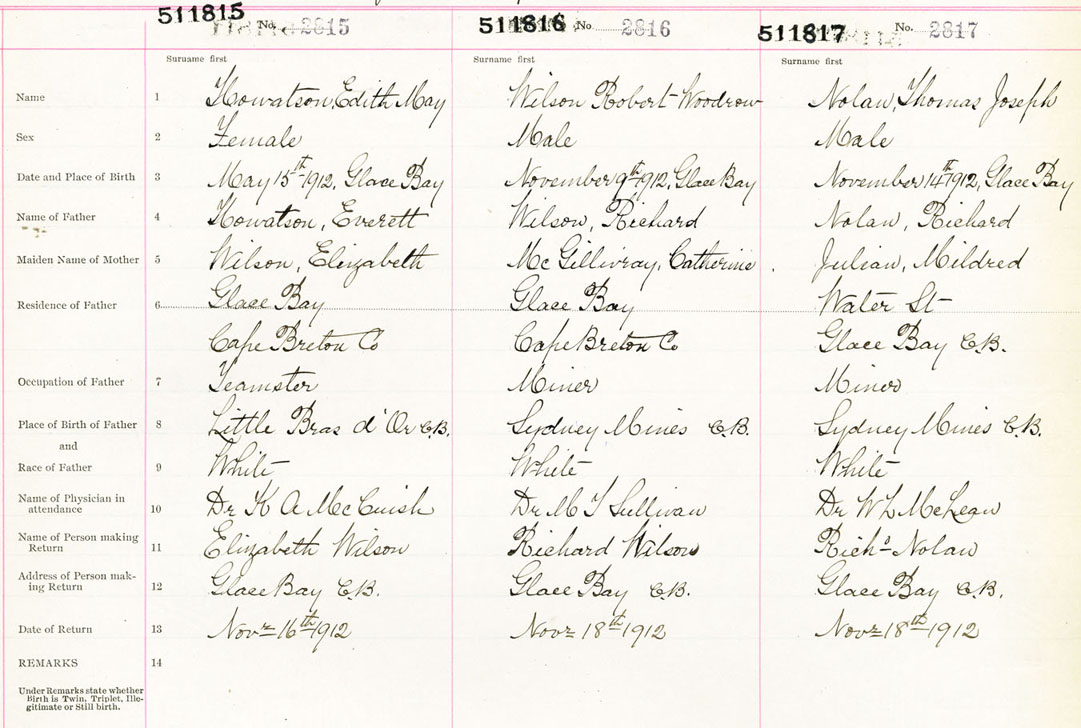 511815 No. 2815 511816 No 2816 511817 No. 2817
Surname first Surname first Surname first
Name 1 Howatson, Edith May Wilson Robert Woodrow Nolan, Thomas Joseph
Sex 2 Female Male Male
Date and Place of Birth 3 May 15th 1912, Glace Bay November 9th 1912, Glace Bay November 14th 1912, Glace Bay
Name of Father 4 Howatson, Everett Wilson, Richard Nolan, Richard
Maiden Name of Mother 5 Wilson, Elizabeth McGillivray, Catherine Julian, Mildred
Residence of Father 6 Glace Bay Glace Bay Water St
Cape Breton Co Cape Breton Co Glace Bay C.B.
Occupation of Father 7 Teamster Miner Miner
Place of Birth of Father 8 Little Bras d'Or C.B. Sydney Mines C.B. Sydney Mines C.B.
and
Race of Father 9 White White White
Name of Physician in
attendance 10 Dr K A McCuish Dr M T Sullivan Dr W L McLean
Name of Person making
Return 11 Elizabeth Wilson Richard Wilson Richd Nolan
Address of Person mak-
ing Return 12 Glace Bay C.B. Glace Bay C.B. Glace Bay C.B.
Date of Return 13 Novr 16th 1912 Novr 18th 1912 Novr 18th 1912
REMARKS 14
Under Remarks state whether
Birth is Twin, Triplet, Ille-
gitimate or Still birth.